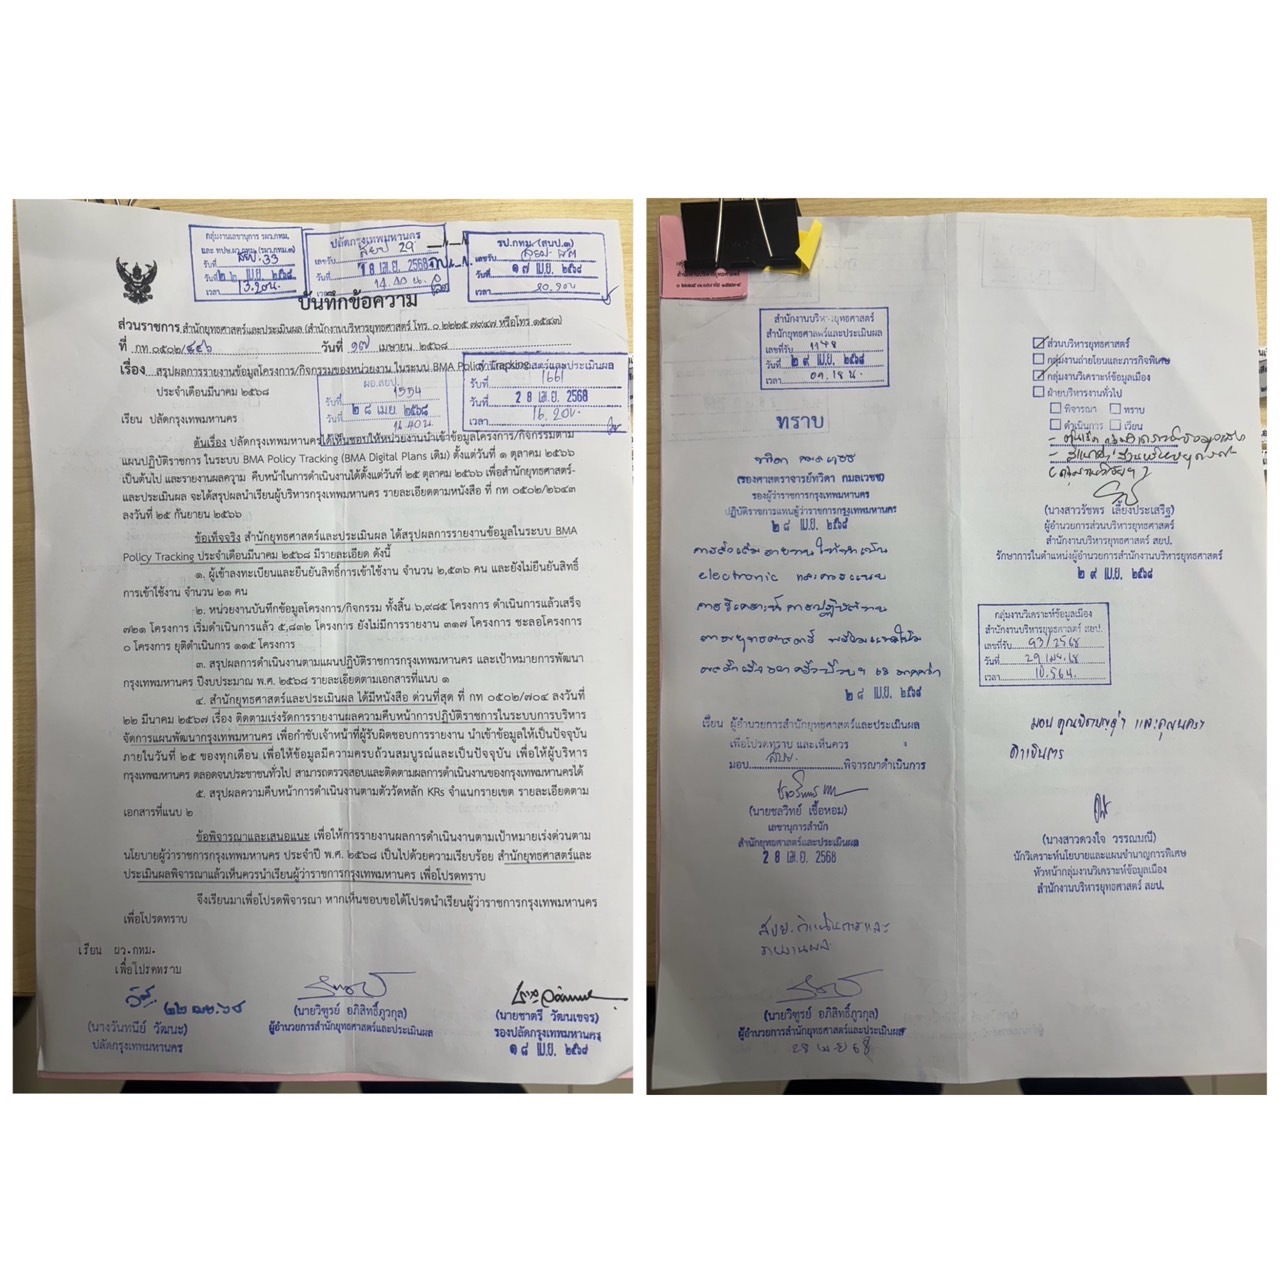 กลุ่มงานเลขานุการ รผว.กทม.
วันที่ ๒๒ เม.ย. ๒๕๖๘
เวลา 13.20น.
ปลัดกรุงเทพมหานคร
เลขรับ
วันที่ 18 เม.ย. 2568
เวลา 14.40 น.
รป.กทม. (สนป.๑)
เลขรับ
วันที่ ๑๗ เม.ย. ๒๕๖๘
เวลา
บันทึกข้อความ
ส่วนราชการ สำนักยุทธศาสตร์และประเมินผล (สำนักงานบริหารยุทธศาสตร์ โทร. ๐ ๒๒๒๕ ๗๙๔๗ หรือโทร ๑๕๔๓)
ที่ กท ๐๕๐๒/๘๔๖ วันที่ ๑๗ เมษายน ๒๕๖๘
เรื่อง สรุปผลการรายงานข้อมูลโครงการ/กิจกรรมของหน่วยงาน ในระบบ BMA Policy Tracking
ประจำเดือนมีนาคม ๒๕๖๘
ผอ.สยป.
1554
วันที่ ๒๘ เม.ย. ๒๕๖๘
สำนักยุทธศาสตร์และประเมินผล
รับที่ 1661
วันที่ 28 เม.ย. 2568
เวลา 16.20น.
เรียน ปลัดกรุงเทพมหานคร
ต้นเรื่อง ปลัดกรุงเทพมหานครได้เห็นชอบให้หน่วยงานนำเข้าข้อมูลโครงการ/กิจกรรมตาม
แผนปฏิบัติราชการ ในระบบ BMA Policy Tracking (BMA Digital Plans เดิม) ตั้งแต่วันที่ ๑ ตุลาคม ๒๕๖๖
เป็นต้นไป และรายงานผลความ คืบหน้าในการดำเนินงานได้ตั้งแต่วันที่ ๒๕ ตุลาคม ๒๕๖๖ เพื่อสำนักยุทธศาสตร์-
และประเมินผล จะได้สรุปผลนำเรียนผู้บริหารกรุงเทพมหานคร รายละเอียดตามหนังสือ ที่ กท ๐๕๐๒/๒๖๔๓
ลงวันที่ ๒๕ กันยายน ๒๕๖๖
ข้อเท็จจริง สำนักยุทธศาสตร์และประเมินผล ได้สรุปผลการรายงานข้อมูลในระบบ BMA
Policy Tracking ประจำเดือนมีนาคม ๒๕๖๘ มีรายละเอียด ดังนี้
๑. ผู้เข้าลงทะเบียนและยืนยันสิทธิ์การเข้าใช้งาน จำนวน ๒,๕๓๖ คน และยังไม่ยืนยันสิทธิ์
การเข้าใช้งาน จำนวน ๒๑ คน
๒. หน่วยงานบันทึกข้อมูลโครงการ/กิจกรรม ทั้งสิ้น ๖,๙๘๕ โครงการ ดำเนินการแล้วเสร็จ
๗๒๑ โครงการ เริ่มดำเนินการแล้ว ๕,๘๓๒ โครงการ ยังไม่มีการรายงาน ๓๑๗ โครงการ ชะลอโครงการ
๐ โครงการ ยุติดำเนินการ ๑๑๕ โครงการ
๓. สรุปผลการดำเนินงานตามแผนปฏิบัติราชการกรุงเทพมหานคร และเป้าหมายการพัฒนา
กรุงเทพมหานคร ปีงบประมาณ พ.ศ. ๒๕๖๘ รายละเอียดตามเอกสารที่แนบ ๑
๔. สำนักยุทธศาสตร์และประเมินผล ได้มีหนังสือ ด่วนที่สุด ที่ กท ๐๕๐๒/๗๐๔ ลงวันที่
๒๒ มีนาคม ๒๕๖๗ เรื่อง ติดตามเร่งรัดการรายงานผลความคืบหน้าการปฏิบัติราชการในระบบการบริหาร
จัดการแผนพัฒนากรุงเทพมหานคร เพื่อกำชับเจ้าหน้าที่ผู้รับผิดชอบการรายงาน นำเข้าข้อมูลให้เป็นปัจจุบัน
ภายในวันที่ ๒๕ ของทุกเดือน เพื่อให้ข้อมูลมีความครบถ้วนสมบูรณ์และเป็นปัจจุบัน เพื่อให้ผู้บริหาร
กรุงเทพมหานคร ตลอดจนประชาชนทั่วไป สามารถตรวจสอบและติดตามผลการดำเนินงานของกรุงเทพมหานครได้
๕. สรุปผลความคืบหน้าการดำเนินงานตามตัววัดหลัก KRs จำแนกรายเขต รายละเอียดตาม
เอกสารที่แนบ ๒
ข้อพิจารณาและเสนอแนะ เพื่อให้การรายงานผลการดำเนินงานตามเป้าหมายเร่งด่วนตาม
นโยบายผู้ว่าราชการกรุงเทพมหานคร ประจำปี พ.ศ. ๒๕๖๘ เป็นไปด้วยความเรียบร้อย สำนักยุทธศาสตร์และ
ประเมินผลพิจารณาแล้วเห็นควรนำเรียนผู้ว่าราชการกรุงเทพมหานคร เพื่อโปรดทราบ
จึงเรียนมาเพื่อโปรดพิจารณา หากเห็นชอบขอได้โปรดนำเรียนผู้ว่าราชการกรุงเทพมหานคร
เพื่อโปรดทราบ
เรียน ผว.กทม.
เพื่อโปรดทราบ
๒๒ เม.ย. ๖๘
(นางวันทนีย์ วัฒนะ)
ปลัดกรุงเทพมหานคร
(นายวิฑูรย์ อภิสิทธิ์ภูวกุล)
ผู้อำนวยการสำนักยุทธศาสตร์และประเมินผล
(นายชาตรี วัฒนเขจร)
รองปลัดกรุงเทพมหานคร
๑๘ เม.ย. ๒๕๖๘
สำนักงานบริหารยุทธศาสตร์
สำนักยุทธศาสตร์และประเมินผล
เลขที่รับ 1178
วันที่ ๒๙ เม.ย. ๒๕๖๘
เวลา 09.18 น.
ทราบ
(รองศาสตราจารย์ทวิดา กมลเวชช)
รองผู้ว่าราชการกรุงเทพมหานคร
ปฏิบัติราชการแทนผู้ว่าราชการกรุงเทพมหานคร
๒๘ เม.ย. ๒๕๖๘
electronic
๒๘ เม.ย. ๒๕๖๘
เรียน ผู้อำนวยการสำนักยุทธศาสตร์และประเมินผล
เพื่อโปรดทราบ และเห็นควร
มอบ สบย. พิจารณาดำเนินการ
(นายชลวิทย์ เชื้อหอม)
เลขานุการสำนัก
สำนักยุทธศาสตร์และประเมินผล
28 เม.ย. 2568
สบย. ดำเนินการและ
รายงานผล
(นายวิฑูรย์ อภิสิทธิ์ภูวกุล)
ผู้อำนวยการสำนักยุทธศาสตร์และประเมินผล
28 เม.ย. 68
ส่วนบริหารยุทธศาสตร์
กลุ่มงานถ่ายโอนและภารกิจพิเศษ
กลุ่มงานวิเคราะห์ข้อมูลเมือง
ฝ่ายบริหารงานทั่วไป
พิจารณา ทราบ
ดำเนินการ เวียน
(นางสาวรัชพร เลี้ยงประเสริฐ)
ผู้อำนวยการส่วนบริหารยุทธศาสตร์
สำนักงานบริหารยุทธศาสตร์ สยป.
รักษาการในตำแหน่งผู้อำนวยการสำนักงานบริหารยุทธศาสตร์
๒๙ เม.ย. ๒๕๖๘
กลุ่มงานวิเคราะห์ข้อมูลเมือง
สำนักงานบริหารยุทธศาสตร์ สยป.
เลขที่รับ 93/2568
วันที่ 29 เม.ย. 68
เวลา 10.56น.
(นางสาวดวงใจ วรรณมณี)
นักวิเคราะห์นโยบายและแผนชำนาญการพิเศษ
หัวหน้ากลุ่มงานวิเคราะห์ข้อมูลเมือง
สำนักงานบริหารยุทธศาสตร์ สยป.